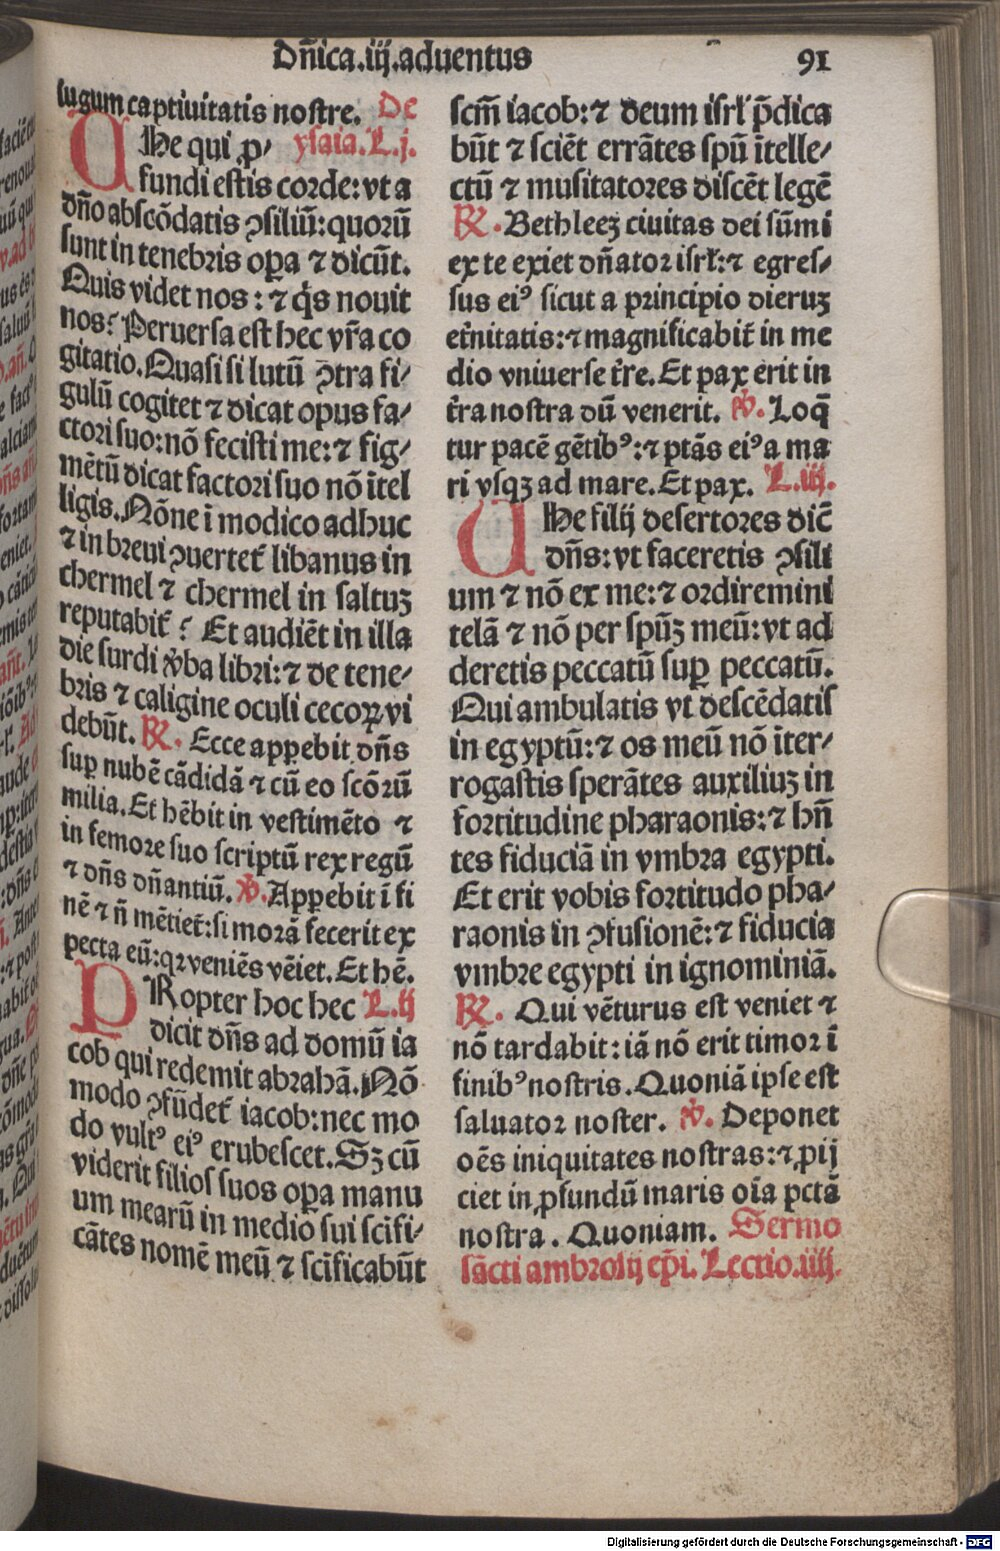 Dñica.iij.aduentus 91
iugum captiuitatis nostre. De
VHe qui ꝓ⸗ ysaia.L.j.
fundi estis corde:vt a
dño abscõdatis ꝯsiliũ:quorũ
sunt in tenebris oꝑa ⁊ dicũt.
Quis videt nos:⁊ q̃s nouit
nos? Peruersa est hec vr̃a co
gitatio.Quasi si lutũ ꝯtra fi⸗
gulũ cogitet ⁊ dicat opus fa⸗
ctori suo:nõ fecisti me:⁊ fig⸗
mẽtũ dicat factori suo nõ ĩtel
ligis.Nõne ĩ modico adhuc
⁊ in breui ꝯuertet̃ libanus in
chermel ⁊ chermel in saltuꝫ
reputabit̃? Et audiẽt in illa
die surdi v̾ba libri:⁊ de tene⸗
bris ⁊ caligine oculi cecoꝝ vi
debũt. ℟. Ecce apꝑebit dñs
suꝑ nubẽ cãdidã ⁊ cũ eo scõrũ
milia.Et hẽbit in vestimẽto ⁊
in femore suo scriptũ rex regũ
⁊ dñs dñantiũ. ℣.Apꝑebit ĩ fi
nẽ ⁊ ñ mẽtiet̃:si morã fecerit ex
pecta eũ:qꝛ veniẽs vẽiet.Et hẽ.
PRopter hoc hec L.ij
dicit dñs ad domũ ia
cob qui redemit abrahã.Nõ
modo ꝯfũdet̃ iacob:nec mo
do vultꝰ eiꝰ erubescet.Sꝫ cũ
viderit filios suos oꝑa manu
um mearũ in medio sui scifi⸗
cãtes nomẽ meũ ⁊ scificabũt
scm̃ iacob:⁊ deum isrł p̃dica
bũt ⁊ sciẽt errãtes spũ ĩtelle⸗
ctũ ⁊ musitatores discẽt legẽ
℟.Bethleeꝫ ciuitas dei sũmi
ex te exiet dñator isrł:⁊ egres⸗
sus eiꝰ sicut a principio dieruꝫ
et̃nitatis:⁊ magnificabit̃ in me
dio vniuerse t̃re.Et pax erit in
t̃ra nostra dũ venerit. ℣.Loq̃
tur pacẽ gẽtibꝰ:⁊ ptãs eiꝰ a ma
ri vsqꝫ ad mare.Et pax. L.iij.
VHe filij desertores dic̃
dñs:vt faceretis ꝯsili
um ⁊ nõ ex me:⁊ ordiremini
telã ⁊ nõ per spũꝫ meũ:vt ad
deretis peccatũ suꝑ peccatũ.
Qui ambulatis vt descẽdatis
in egyptũ:⁊ os meũ nõ ĩter⸗
rogastis sperãtes auxiliuꝫ in
fortitudine pharaonis:⁊ hñ
tes fiduciã in vmbra egypti.
Et erit vobis fortitudo pha⸗
raonis in ꝯfusionẽ:⁊ fiducia
vmbre egypti in ignominiã.
℟. Qui vẽturus est veniet ⁊
nõ tardabit:iã nõ erit timor ĩ
finibꝰ nostris.Quoniã ipse est
saluator noster. ℣. Deponet
oẽs iniquitates nostras:⁊ ꝓij
ciet in ꝓfundũ maris oĩa pctã
nostra. Quoniam. Sermo
sãcti ambrosij ep̃i. Lectio.iiij.
Digitalisierung gefördert durch die Deutsche Forschungsgemeinschaft - DFG